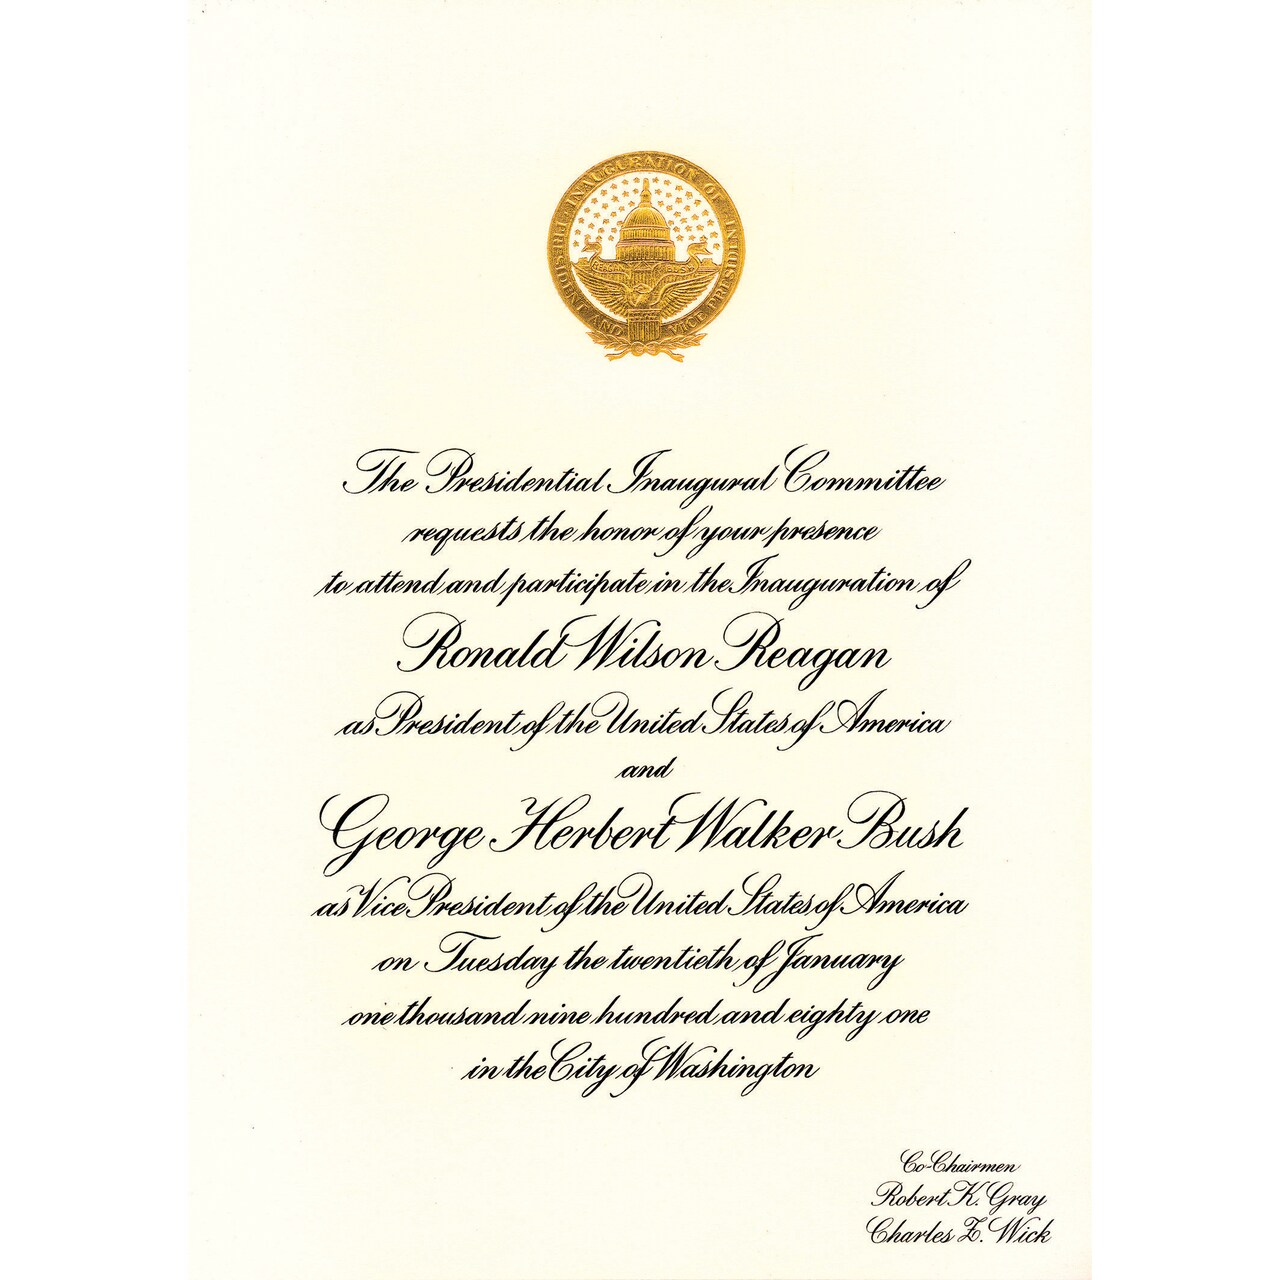 INAUGURATION OF
PRESIDENT AND VICE PRESIDENT
REAGAN BUSH
The Presidential Inaugural Committee
requests the honor of your presence
to attend and participate in the Inauguration of
Ronald Wilson Reagan
as President of the United States of America
and
George Herbert Walker Bush
as Vice President of the United States of America
on Tuesday the twentieth of January
one thousand nine hundred and eighty one
in the City of Washington
Co-Chairmen
Robert K. Gray
Charles Z. Wick